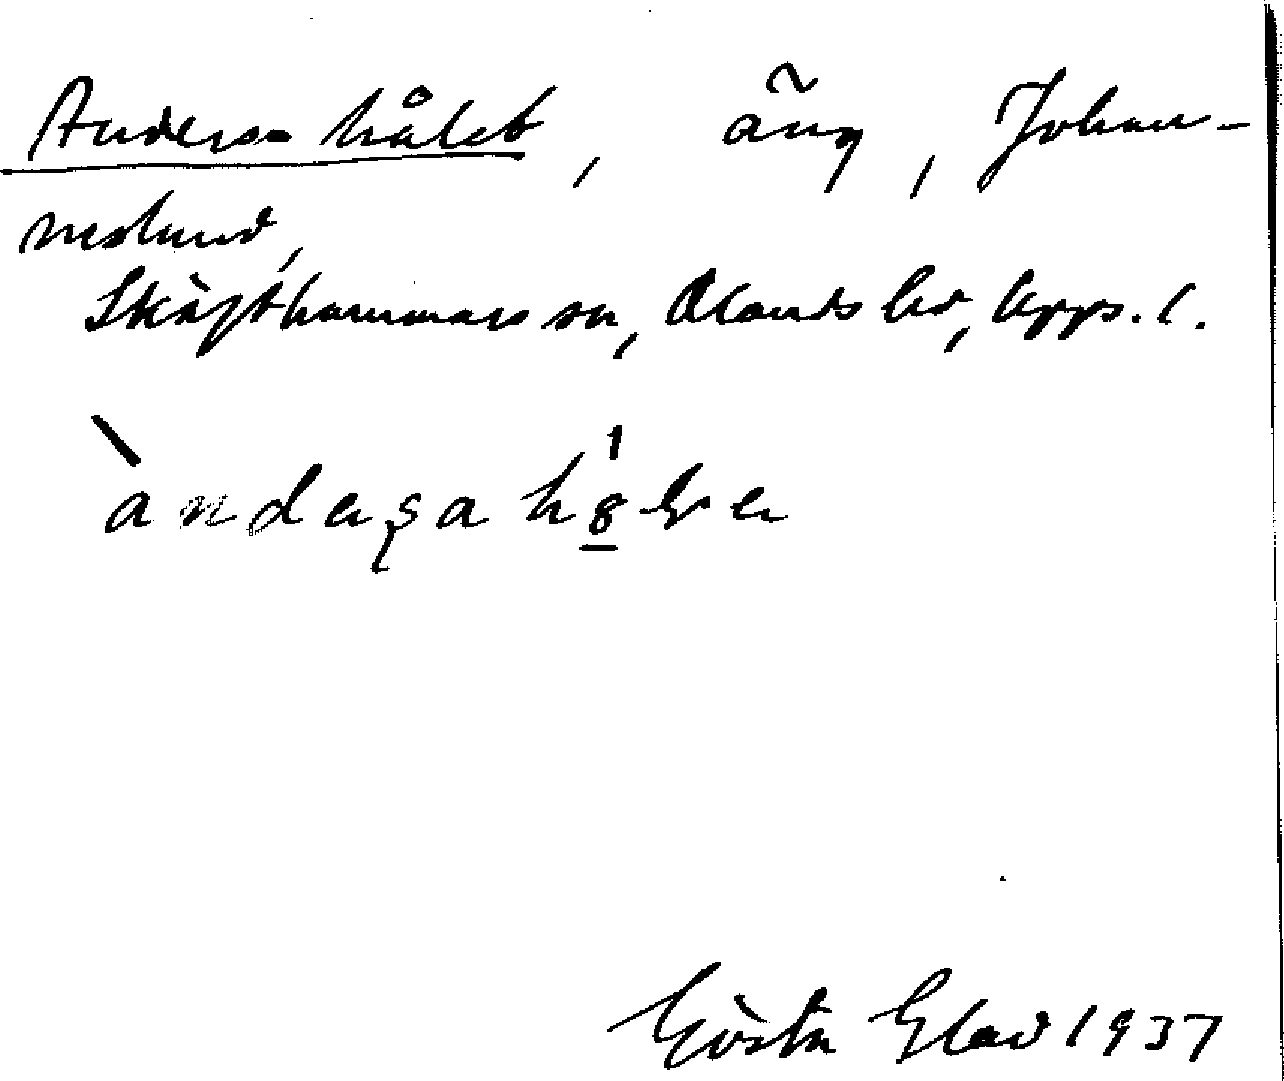 Andersa hålet, äng, Johan-
neslund,
Skäfthammars sn, Olands hd, Upps. l.
Gösta Glad 1937